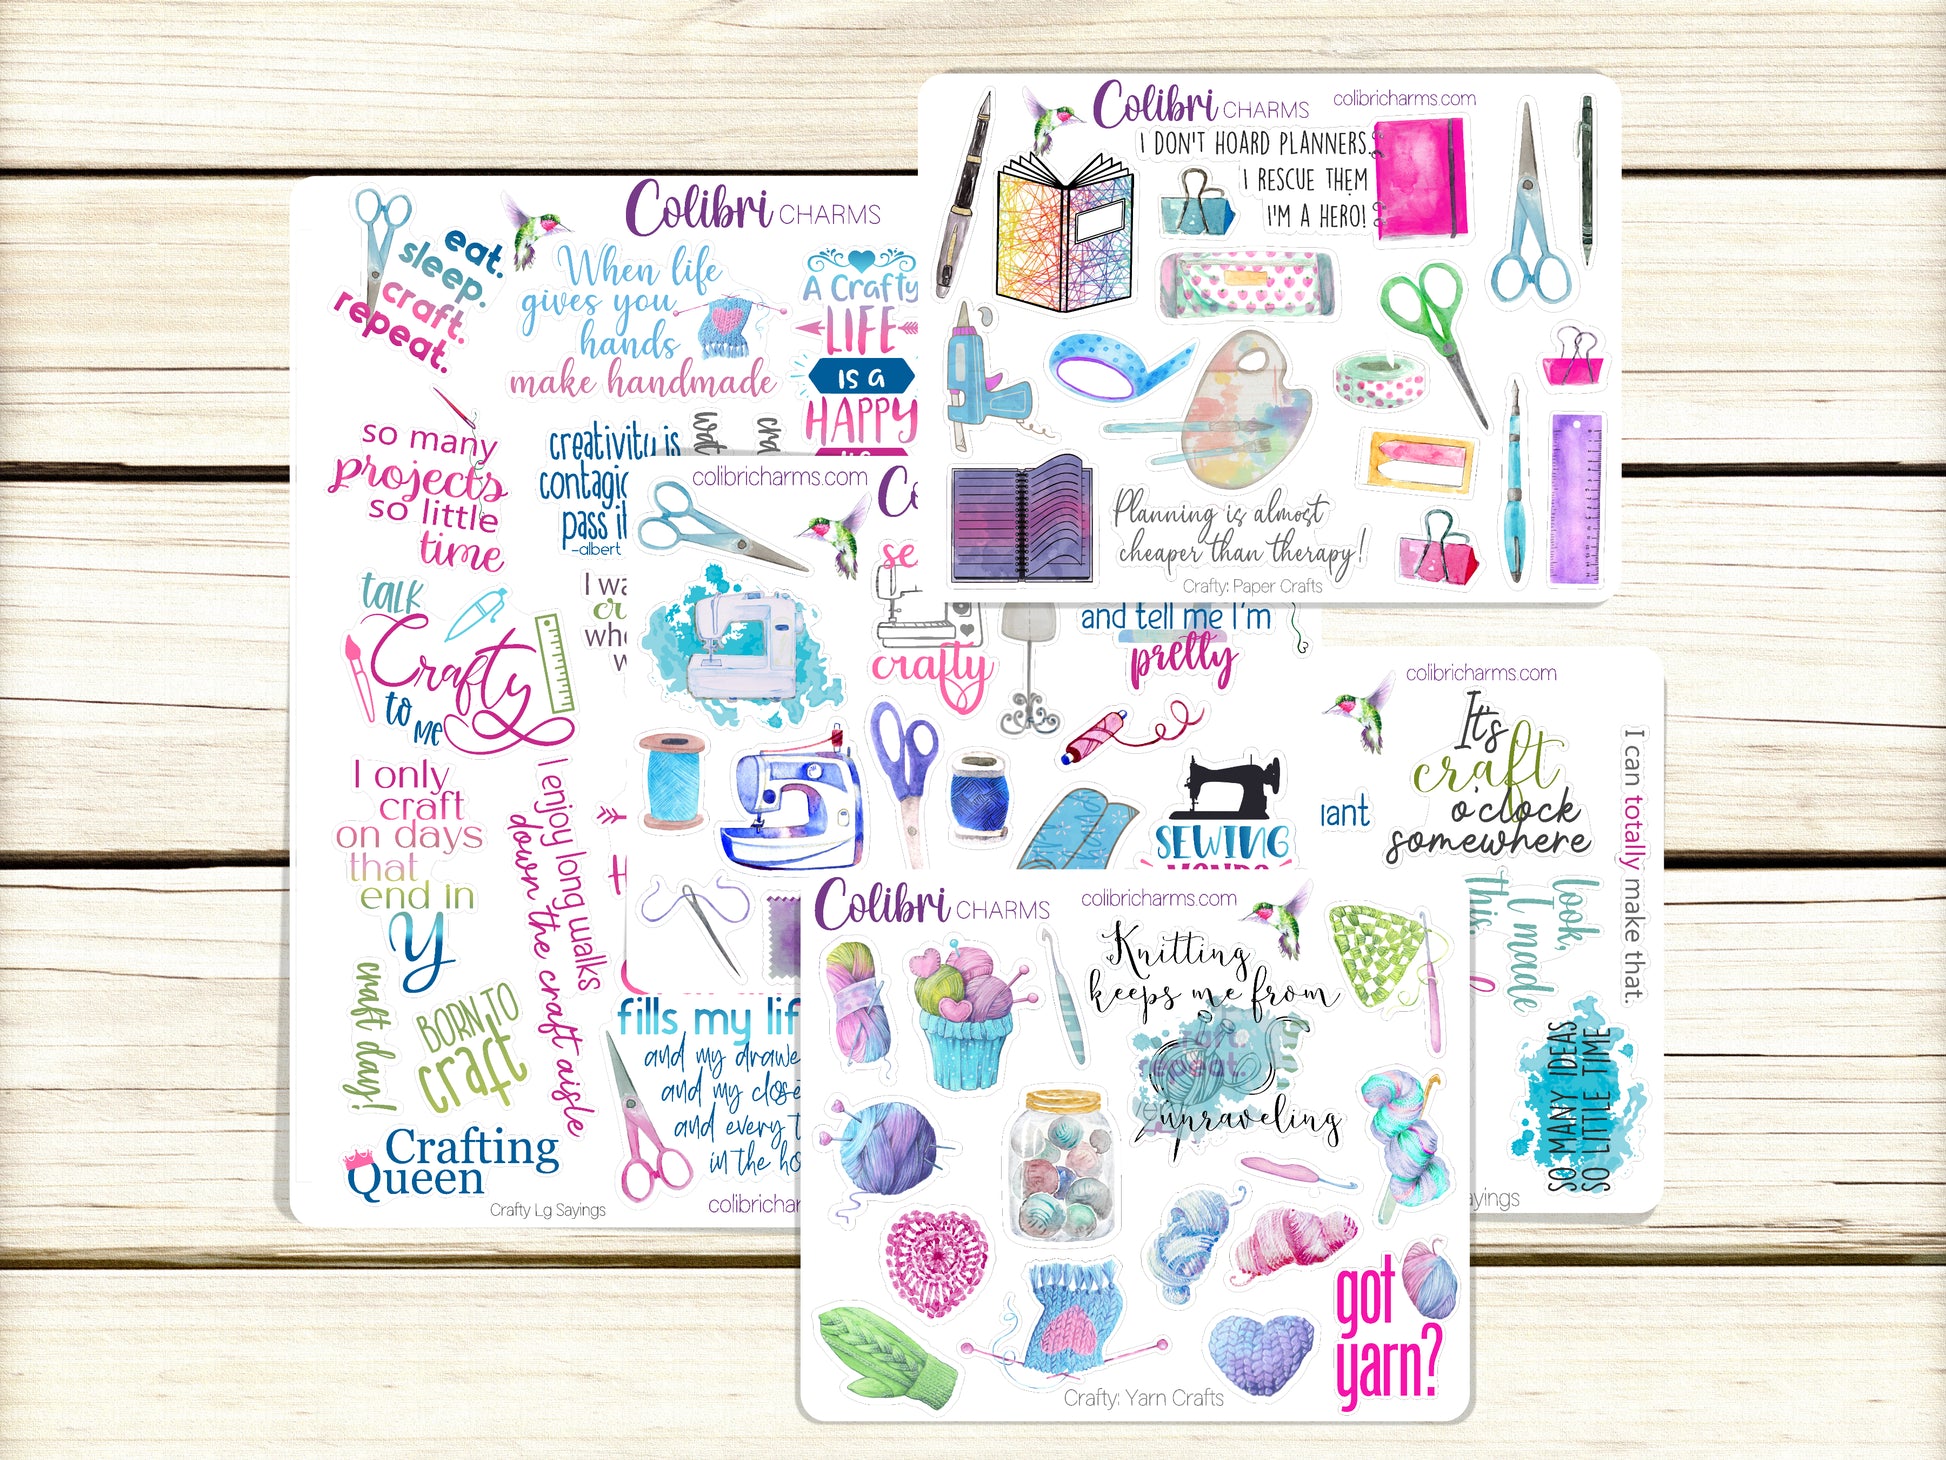 Colibri CHARMS
eat.
sleep.
craft.
repeat.
When life
gives you
hands
make handmade
A Crafty
LIFE
is a
HAPPY
so many
projects
so little
time
creativity is
pass
-albert
talk
Crafty
to
me
I only
craft
on days
that
end in
y
I enjoy long walks
down the craft aisle
craft day!
BORN TO
craft
Crafting
Queen
Crafty Lg Sayings
fills my
and my
and my
and every
in the
colibricharms.com
crafty
and tell me I'm
pretty
SEWING
Colibri CHARMS
colibricharms.com
I DON'T HOARD PLANNERS.
I RESCUE THEM
I'M A HERO!
Planning is almost
cheaper than therapy!
Crafty: Paper Crafts
colibricharms.com
It's
craft
o'clock
somewhere
I can totally make that.
look,
I made
this.
SO MANY IDEAS
SO LITTLE TIME
Colibri CHARMS
colibricharms.com
Knitting
keeps me from
repeat.
unraveling
got
yarn?
Crafty: Yarn Crafts